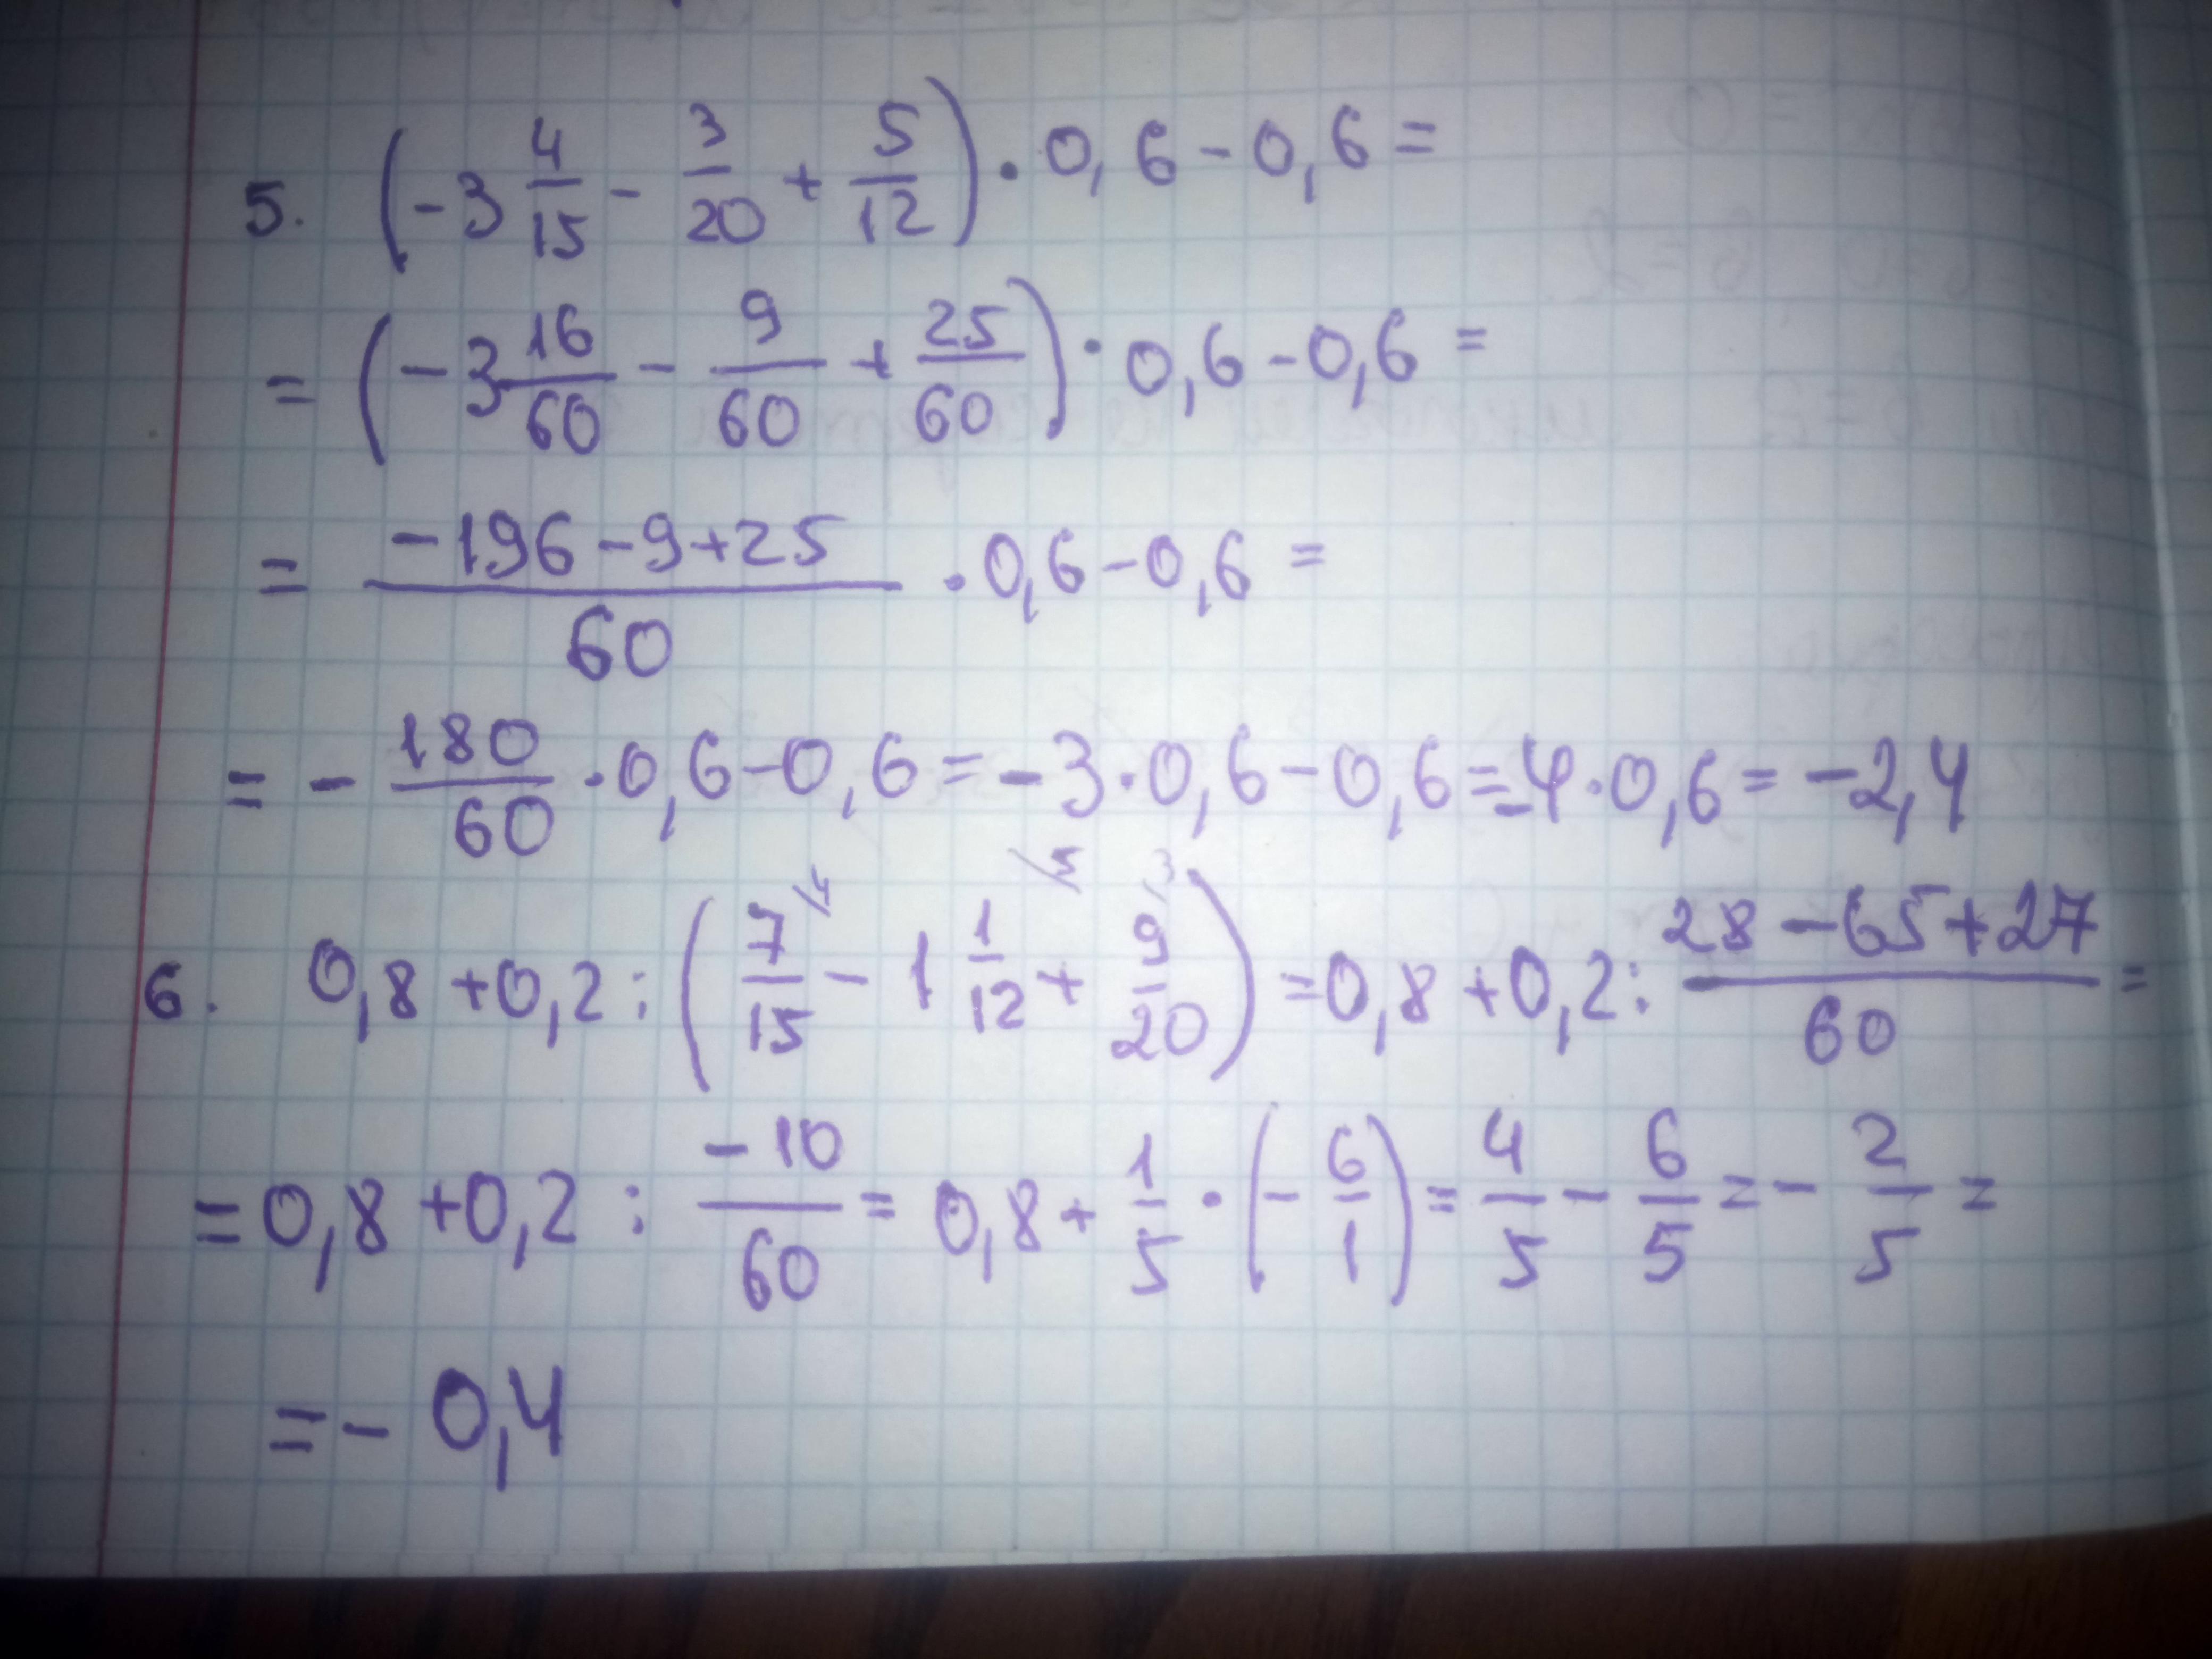 5. (-3 4/15 - 3/20 + 5/12) · 0,6 - 0,6 =
= (-3 16/60 - 9/60 + 25/60) · 0,6 - 0,6 =
= (-196 - 9 + 25)/60 · 0,6 - 0,6 =
= - 180/60 · 0,6 - 0,6 = -3 · 0,6 - 0,6 = -4 · 0,6 = -2,4
6. 0,8 + 0,2 : (7/15 \4 - 1 1/12 \5 + 9/20 \3) = 0,8 + 0,2 : (28 - 65 + 27)/60 =
= 0,8 + 0,2 : -10/60 = 0,8 + 1/5 · (- 6/1) = 4/5 - 6/5 = - 2/5 =
= - 0,4